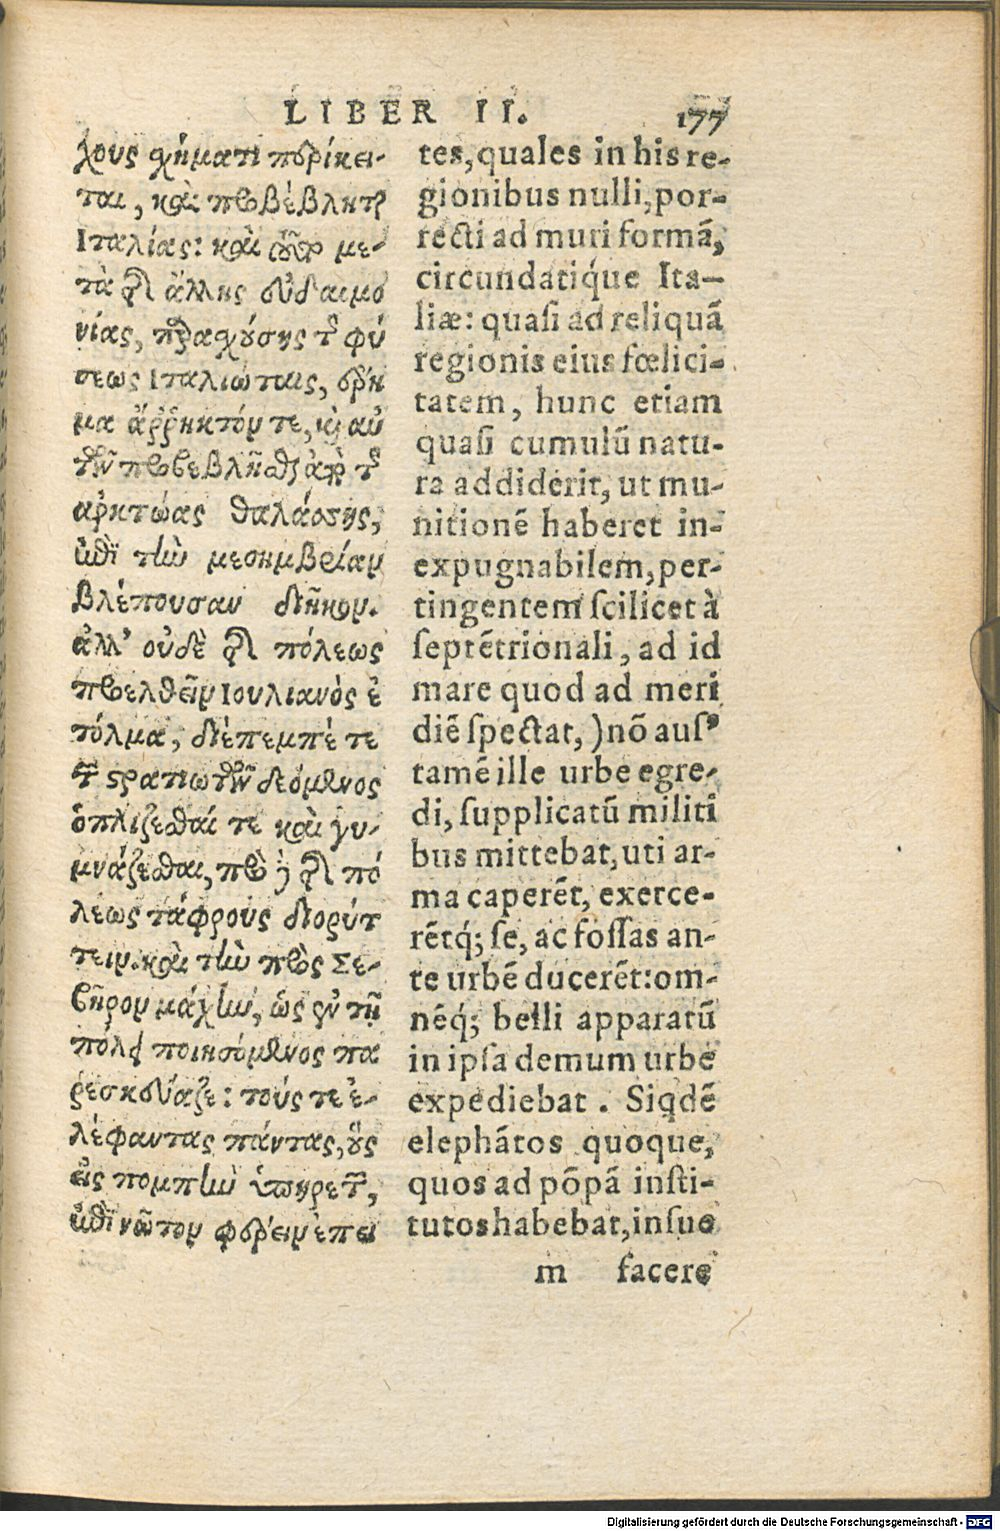 LIBER II. 177
χους χήματι περίκει-
ται, καὶ προβέβληται
Ἰταλίας: καὶ τοῦτο με-
τὰ τῆς ἄλλης εὐδαιμο
νίας, παρασχούσης τῆς φύ
σεως Ἰταλιώταις, ἔρυ
μα ἄρρηκτόν τε, καὶ αὐ
τῶν προβεβλῆσθαι ἀπὸ τῆς
ἀρκτώας θαλάσσης,
ἐπὶ τὴν μεσημβρίαν
βλέπουσαν διῆκον.
ἀλλ’ οὐδὲ τῆς πόλεως
προελθεῖν Ἰουλιανὸς ἐ
τόλμα, διέπεμπέ τε
τῶν στρατιωτῶν δεόμενος
ὁπλίζεσθαί τε καὶ γυ-
μνάζεσθαι, πρό τε τῆς πό
λεως τάφρους διορύτ
τειν. καὶ τὴν πρὸς Σε-
βῆρον μάχην, ὡς ἐν τῇ
πόλει ποιησόμενος πα
ρεσκεύαζε: τούς τε ἐ-
λέφαντας πάντας, οὓς
εἰς πομπὴν ὑπηρετ,
ἐπὶ νῶτον φέρειν ἐπει
tes, quales in his re-
gionibus nulli, por-
recti ad muri formã,
circundatiq́ue Ita-
liæ: quasi ad reliquã
regionis eius fœlici-
tatem, hunc etiam
quasi cumulũ natu-
ra addiderit, ut mu-
nitionẽ haberet in-
expugnabilem, per-
tingentem scilicet à
septẽtrionali, ad id
mare quod ad meri
diẽ spectat,) nõ ausꝰ
tamẽ ille urbe egre-
di, supplicatũ militi
bus mittebat, uti ar-
ma caperẽt, exerce-
rẽtq́; se, ac fossas an-
te urbẽ ducerẽt: om-
nẽq́; belli apparatũ
in ipsa demum urbe
expediebat. Siqdẽ
elephãtos quoque,
quos ad põpã insti-
tutos habebat, insue
m facere
Digitalisierung gefördert durch die Deutsche Forschungsgemeinschaft - DFG